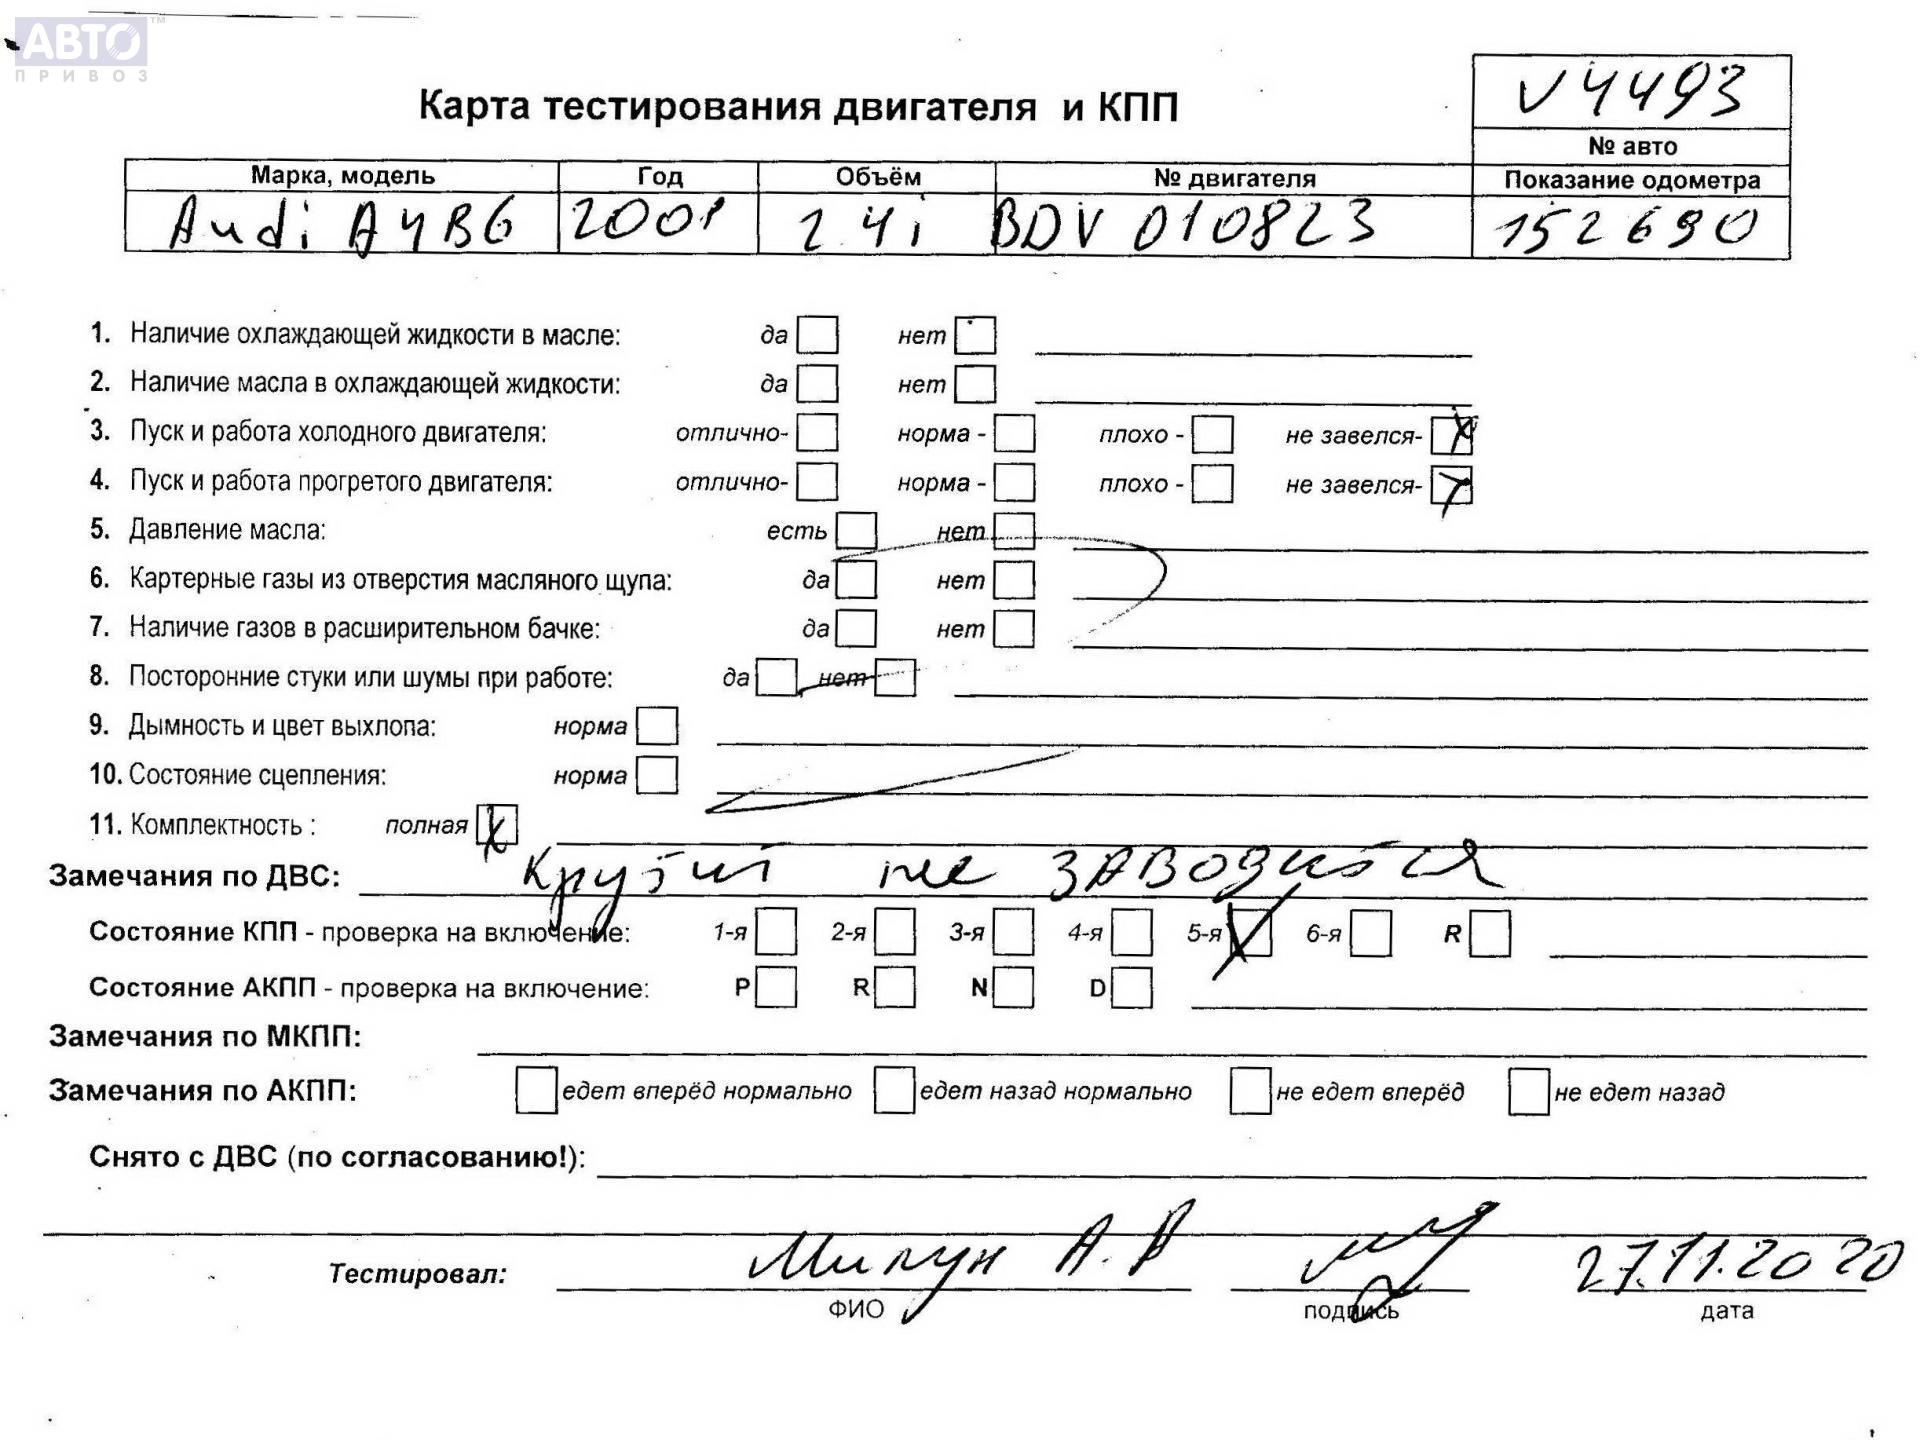 АВТО™
ПРИВОЗ
V4493
Карта тестирования двигателя и КПП
№ авто
Марка, модель Год Объём № двигателя Показание одометра
Audi A4B6 2001 2.4i BDV 010823 152690
1. Наличие охлаждающей жидкости в масле: да нет
2. Наличие масла в охлаждающей жидкости: да нет
3. Пуск и работа холодного двигателя: отлично- норма - плохо - не завелся-
4. Пуск и работа прогретого двигателя: отлично- норма - плохо - не завелся-
5. Давление масла: есть нет
6. Картерные газы из отверстия масляного щупа: да нет
7. Наличие газов в расширительном бачке: да нет
8. Посторонние стуки или шумы при работе: да нет
9. Дымность и цвет выхлопа: норма
10. Состояние сцепления: норма
11. Комплектность : полная
Замечания по ДВС: Крутит не заводится
Состояние КПП - проверка на включение: 1-я 2-я 3-я 4-я 5-я 6-я R
Состояние АКПП - проверка на включение: P R N D
Замечания по МКПП:
Замечания по АКПП: едет вперёд нормально едет назад нормально не едет вперёд не едет назад
Снято с ДВС (по согласованию!):
Тестировал: А.В 27.11.2020
ФИО подпись дата